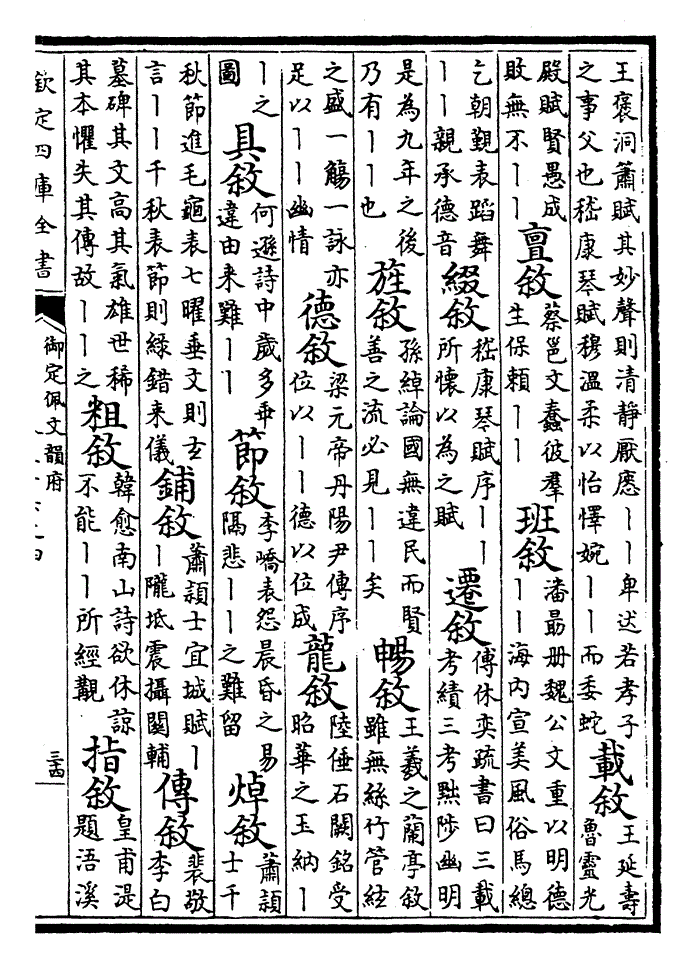 王褒洞簫賦其妙聲則清靜厭㥷丨丨卑迏若孝子
之事父也嵇康琴賦穆溫柔以怡懌婉丨丨而委蛇
載敘
王延壽
魯靈光
殿賦賢愚成
敗無不丨丨
亶敘
蔡邕文蠢彼羣
生保賴丨丨
班敘
潘勗册魏公文重以明德
丨丨海內宣美風俗馬總
乞朝覲表蹈舞
丨丨親承德音
綴敘
嵇康琴賦序丨丨
所懷以為之賦
遷敘
傅休奕疏書曰三載
考績三考黜陟幽明
是為九年之後
乃有丨丨也
旌敘
孫綽論國無違民而賢
善之流必見丨丨矣
暢敘
王羲之蘭亭敘
雖無絲竹管絃
之盛一觴一詠亦
足以丨丨幽情
德敘
梁元帝丹陽尹傳序
位以丨丨德以位成
龍敘
陸倕石闕銘受
昭華之玉納丨
丨之
圖
具敘
何遜詩中歲多乖
違由来難丨丨
節敘
李嶠表怨晨昏之易
隔悲丨丨之難留
焯敘
蕭頴
士千
秋節進毛龜表七曜垂文則玄
言丨丨千秋表節則綠錯来儀
鋪敘
蕭頴士宜城賦丨
丨隴坻震攝闗輔
傳敘
裴敬
李白
墓碑其文高其氣雄世稀
其本懼失其傳故丨丨之
粗敘
韓愈南山詩欲休諒
不能丨丨所經覯
指敘
皇甫湜
題浯溪
欽定四庫全書
御定佩文韻府
三十四